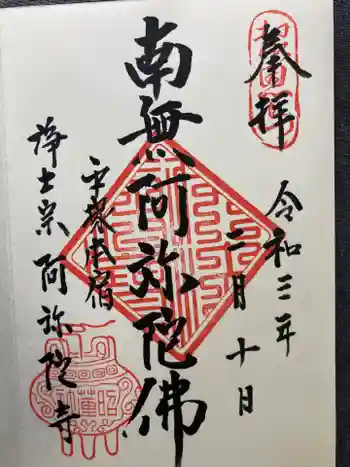 奉拝
令和三年
二月十日
南無阿弥陀佛
浄土宗 阿弥陀寺